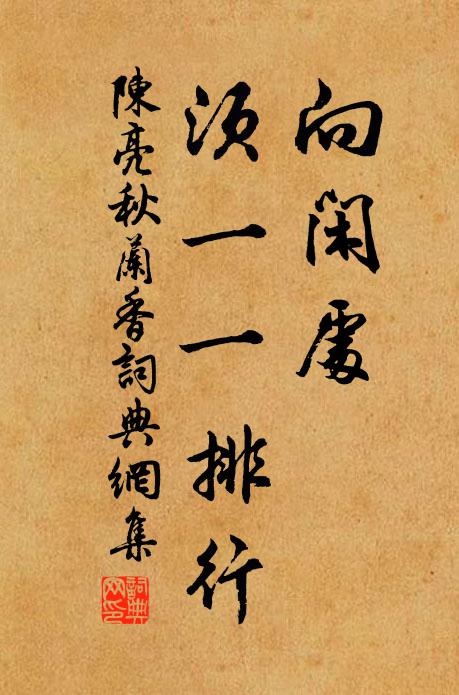 向閑處
須一一排行
陳亮秋蘭香詞典網集
詞典網印